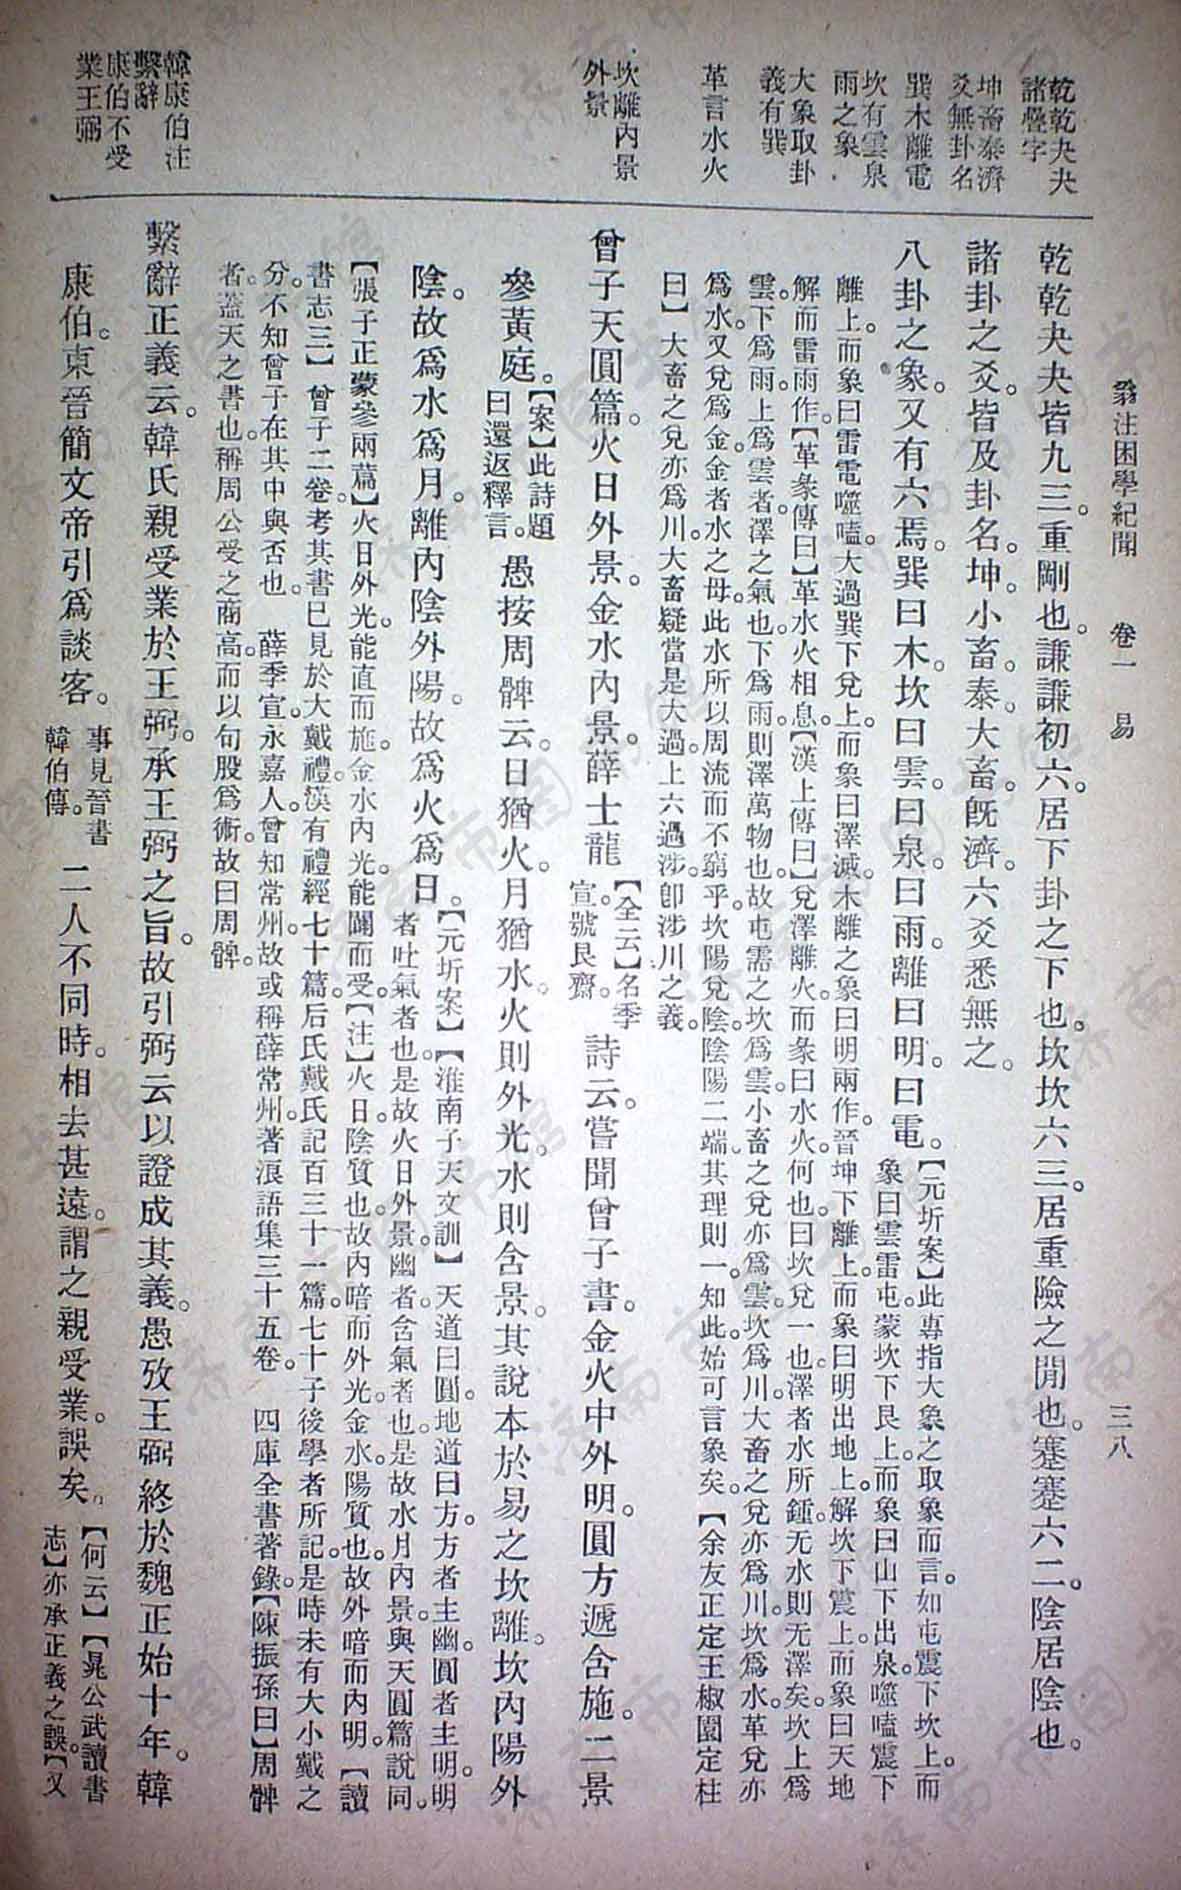 翁注困學紀聞　卷一　易　三八
乾乾夬夬
諸疊字
坤畜泰濟
爻無卦名
巽木離電
坎有雲泉
雨之象
大象取卦
義有巽
革言水火
坎離內景
外景
韓康伯注
繫辭
康伯不受
業王弼
乾乾夬夬皆九三。重剛也。謙謙初六。居下卦之下也。坎坎六三。居重險之閒也。蹇蹇六二。陰居陰也。
諸卦之爻。皆及卦名。坤。小畜。泰。大畜。既濟。六爻悉無之。
八卦之象。又有六焉。巽曰木。坎曰雲。曰泉。曰雨。離曰明。曰電。
【元圻案】此專指大象之取象而言。如屯震下坎上。而
象曰雲雷屯。蒙坎下艮上。而象曰山下出泉。噬嗑震下
離上。而象曰雷電噬嗑。大過巽下兌上。而象曰澤滅木。離之象曰明兩作。晉坤下離上。而象曰明出地上。解坎下震上。而象曰天地
解而雷雨作。【革彖傳曰】革水火相息。【漢上傳曰】兌澤離火。而彖曰水火。何也。曰坎兌一也。澤者水所鍾。无水則无澤矣。坎上為
雲。下為雨。上為雲者。澤之氣也。下為雨。則澤萬物也。故屯需之坎為雲。小畜之兌亦為雲。坎為川。大畜之兌亦為川。坎為水。革兌亦
為水。又兌為金。金者水之母。此水所以周流而不窮乎。坎陽兌陰。陰陽二端。其理則一。知此。始可言象矣。【余友正定王椒園定柱
曰】大畜之兌亦為川。大畜疑當是大過。上六過涉。卽涉川之義。
曾子天圓篇。火日外景。金水內景。薛士龍
【全云】名季
宣。號艮齋。
詩云。嘗聞曾子書。金火中外明。圓方遞含施。二景
參黃庭。
【案】此詩題
曰還返釋言。
愚按周髀云。日猶火。月猶水。火則外光。水則含景。其說本於易之坎離。坎內陽外
陰。故為水為月。離內陰外陽。故為火為日。
【元圻案】【淮南子天文訓】天道曰圓。地道曰方。方者主幽。圓者主明。明
者吐氣者也。是故火日外景。幽者含氣者也。是故水月內景。與天圓篇說同。
【張子正蒙參兩篇】火日外光。能直而施。金水內光。能闢而受。【注】火日。陰質也。故內暗而外光。金水。陽質也。故外暗而內明。【讀
書志三】曾子二卷。考其書已見於大戴禮。漢有禮經七十篇。后氏戴氏記百三十一篇。七十子後學者所記。是時未有大小戴之
分。不知曾子在其中與否也。　薛季宣。永嘉人。曾知常州。故或稱薛常州。著浪語集三十五卷。　四庫全書著錄。【陳振孫曰】周髀
者。蓋天之書也。稱周公受之商高。而以句股為術。故曰周髀。
繫辭正義云。韓氏親受業於王弼。承王弼之旨。故引弼云以證成其義。愚攷王弼終於魏正始十年。韓
康伯。東晉簡文帝引為談客。
事見晉書
韓伯傳。
二人不同時。相去甚遠。謂之親受業。誤矣。
【何云】【晁公武讀書
志】亦承正義之誤。【又